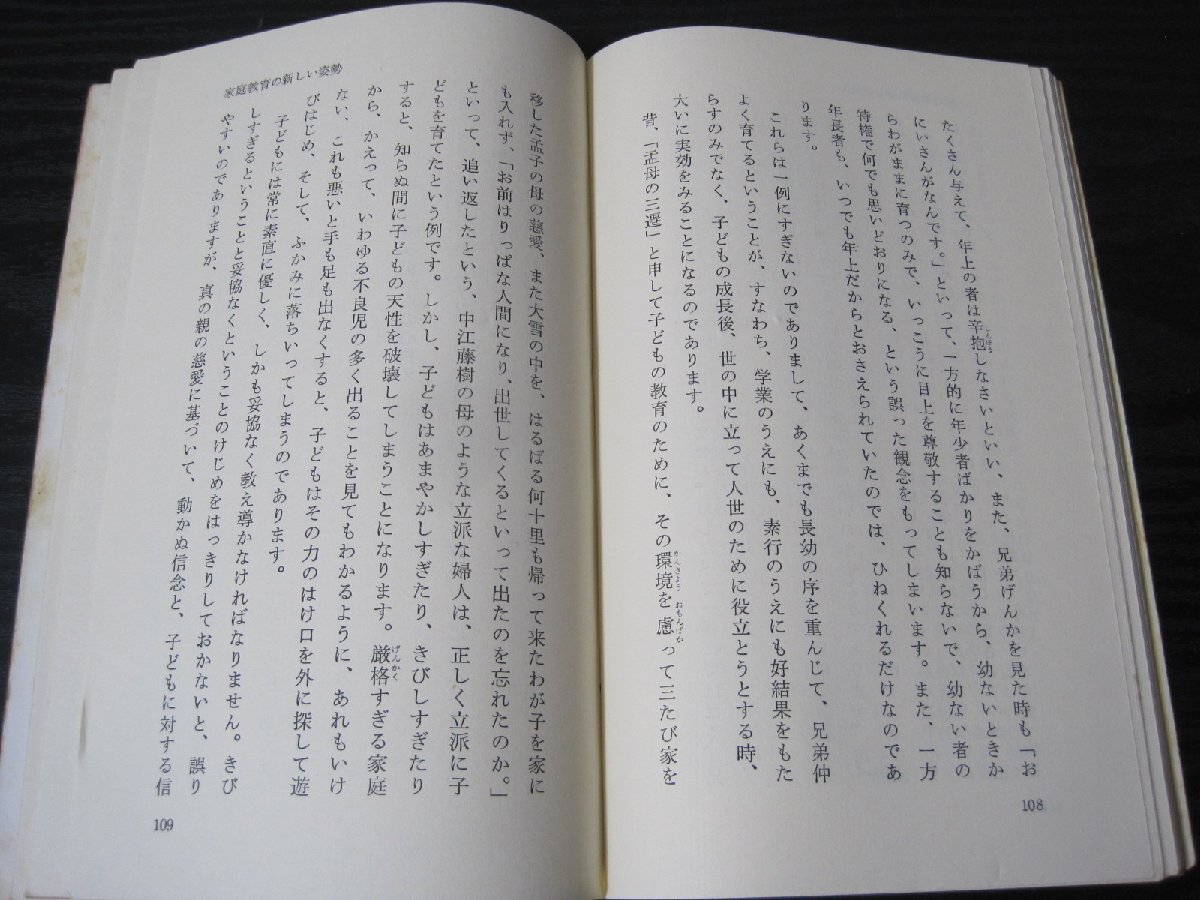 たくさん与えて、年上の者は辛抱しなさいといい、また、兄弟げんかを見た時も「お
しんぼう
にいさんがなんです。」といって、一方的に年少者ばかりをかばうから、幼ないときか
らわがままに育つのみで、いっこうに目上を尊敬することも知らないで、幼ない者の
特権で何でも思いどおりになる、という誤った観念をもってしまいます。また、一方
年長者も、いつでも年上だからとおさえられていたのでは、ひねくれるだけなのであ
ります。
これらは一例にすぎないのでありまして、あくまでも長幼の序を重んじて、兄弟仲
よく育てるということが、すなわち、学業のうえにも、素行のうえにも好結果をもた
らすのみでなく、子どもの成長後、世の中に立って人世のために役立とうとする時、
大いに実効をみることになるのであります。
昔、「孟母の三遷」と申して子どもの教育のために、その環境を慮って三たび家を
かんきょう おもんばか
108
家庭教育の新しい姿勢
移した孟子の母の慈愛、また大雪の中を、はるばる何十里も帰って来たわが子を家に
も入れず、「お前はりっぱな人間になり、出世してくるといって出たのを忘れたのか。」
といって、追い返したという、中江藤樹の母のような立派な婦人は、正しく立派に子
どもを育てたという例です。しかし、子どもはあまやかしすぎたり、きびしすぎたり
すると、知らぬ間に子どもの天性を破壊してしまうことになります。厳格すぎる家庭
げんかく
から、かえって、いわゆる不良児の多く出ることを見てもわかるように、あれもいけ
ない、これも悪いと手も足も出なくすると、子どもはその力のはけ口を外に探して遊
びはじめ、そして、ふかみに落ちいってしまうのであります。
子どもには常に素直に優しく、しかも妥協なく教え導かなければなりません。きび
しすぎるということと妥協なくということのけじめをはっきりしておかないと、誤り
やすいのでありますが、真の親の慈愛に基づいて、動かぬ信念と、子どもに対する信
109